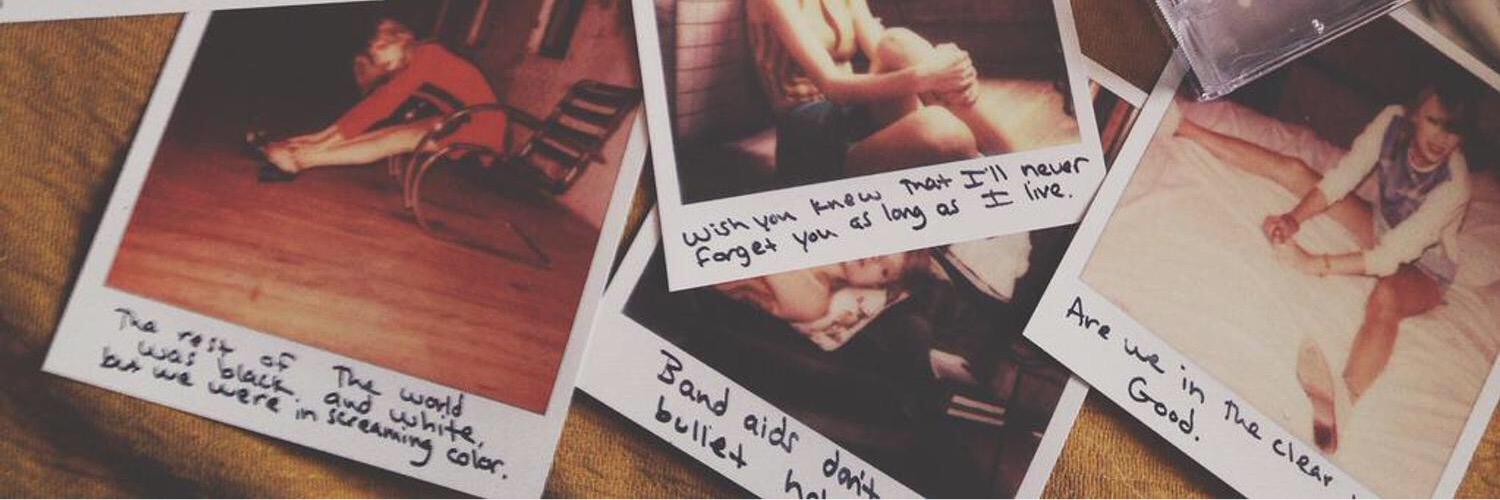 The rest of The world
was black and white,
but we were in screaming color.
Wish you knew that I'll never
forget you as long as I live.
Band aids don't
bullet
Are we in the clear
Good.